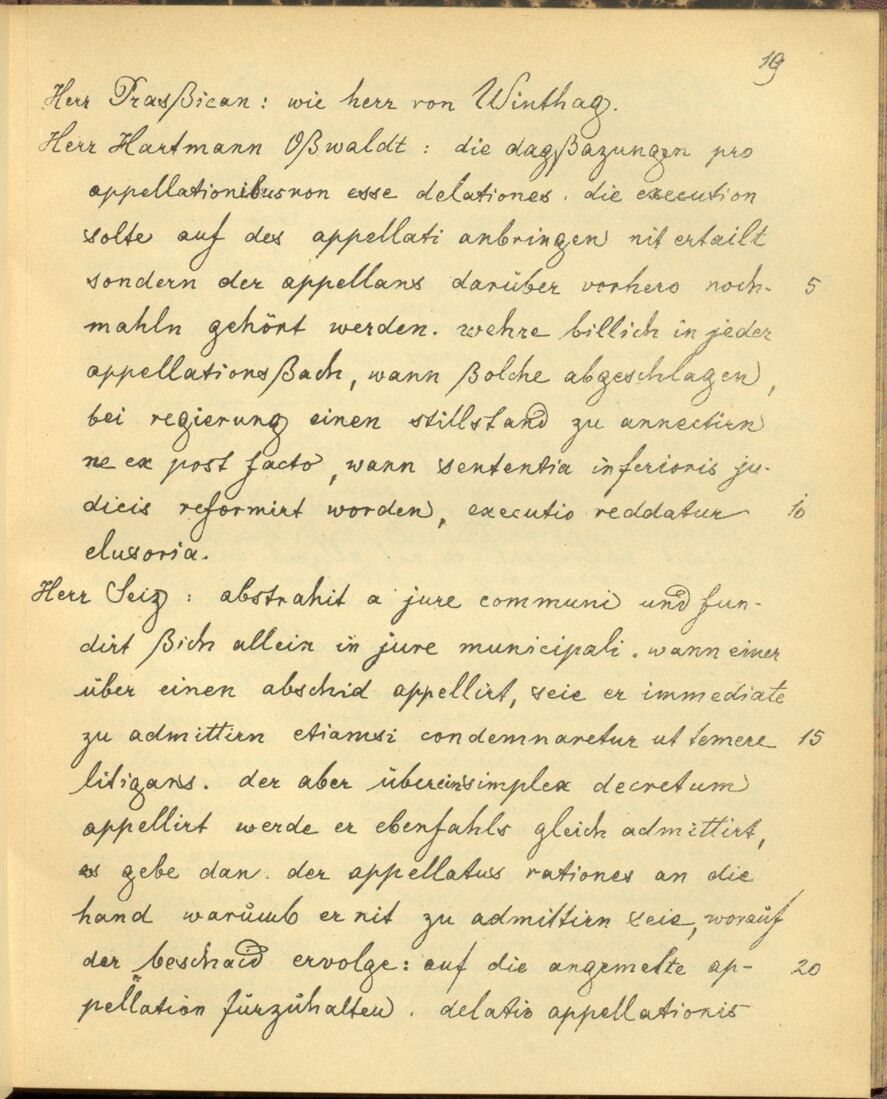 19
Herr Prasßican: wie herr von Winthag.
Herr Hartmann Oßwaldt: die dagßazungen pro
appellationibus non esse delationes. die execution
solte auf des appellati anbringen nit ertailt
sondern der appellans darüber vorhero noch- 5
mahln gehört werden. wehre billich in jeder
appellationsßach, wann ßolche abgeschlagen,
bei regierung einen stillstand zu annectirn
ne ex post facto, wann sententia inferioris ju-
dicis reformirt worden, executio reddatur 10
elusoria.
Herr Seiz: abstrahit a jure communi und fun-
dirt ßich allein in jure municipali. wann einer
über einen abschid appellirt, seie er immediate
zu admittirn etiamsi condemnaretur ut temere 15
litigans. der aber über ein simplex decretum
appellirt werde er ebenfahls gleich admittirt,
es gebe dan der appellatus rationes an die
hand warůmb er nit zu admittirn seie, worauf
der beschaid ervolge: auf die angemelte ap- 20
pellation fürzůhalten. delatio appellationis